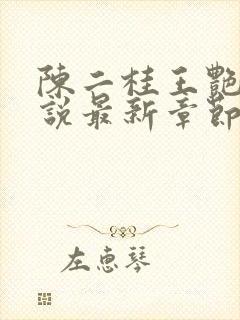 陳二柱王艷
說最新章節
左惠琴